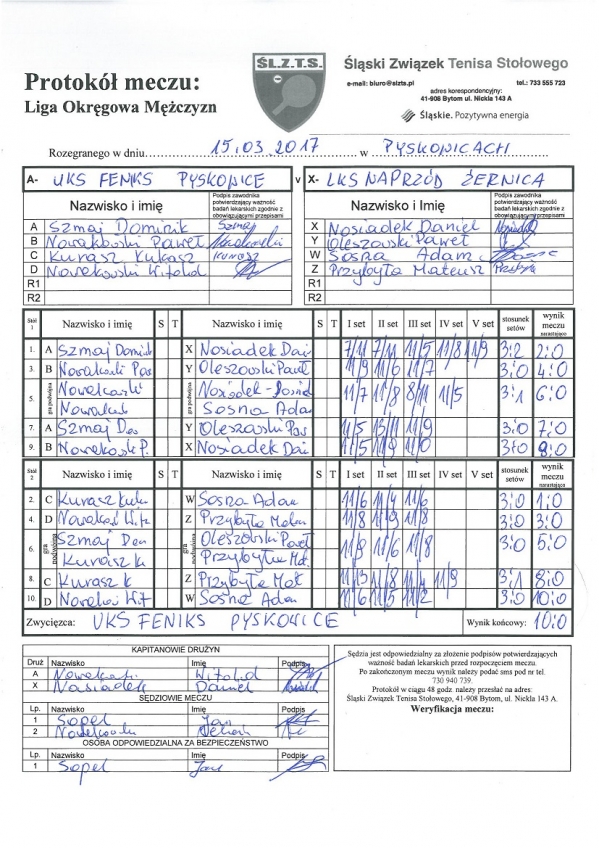 ŚL.Z.T.S.
Protokół meczu:
Liga Okręgowa Mężczyzn
Śląski Związek Tenisa Stołowego
e-mail: biuro@slzts.pl tel.: 733 555 723
adres korespondencyjny:
41-908 Bytom ul. Nickla 143 A
Śląskie. Pozytywna energia
Rozegranego w dniu 15.03.2017 w PYSKOWICACH
A- UKS FENIKS PYSKOWICE v X- LKS NAPRZÓD ŻERNICA
Nazwisko i imię Podpis zawodnika potwierdzający ważność badań lekarskich zgodnie z obowiązującymi przepisami Nazwisko i Imię Podpis zawodnika potwierdzający ważność badań lekarskich zgodnie z obowiązującymi przepisami
A Szmaj Dominik Szmaj X Nosiadek Daniel
B Nowakowski Paweł Y Oleszowski Paweł
C Kurasz Łukasz Kurasz W Sosna Adam
D Nowakowski Witold Z Przybyła Mateusz
R1 R1
R2 R2
Stół 1 Nazwisko i imię S T Nazwisko i imię S T I set II set III set IV set V set stosunek setów wynik meczu narastająco
1. A Szmaj X Nosiadek 7/11 7/11 11/5 11/8 11/9 3:2 2:0
3. B Y Oleszowski Paweł 11/9 11/6 11/7 3:0 4:0
5. gra podwójna 11/7 11/8 8/11 11/5 3:1 6:0
Sosna Adam
7. A Szmaj Y Oleszowski 11/5 13/11 11/9 3:0 7:0
9. B Nowakowski P. X Nosiadek 11/5 11/9 11/0 3:0 9:0
Stół 2 Nazwisko i imię S T Nazwisko i imię S T I set II set III set IV set V set stosunek setów wynik meczu narastająco
2. C Kurasz W Sosna Adam 11/6 11/4 11/6 3:0 1:0
4. D Z Przybyła 11/8 11/9 11/8 3:0 3:0
6. gra podwójna Szmaj Oleszowski Paweł 11/8 11/6 11/8 3:0 5:0
Kurasz Ł Przybyła Mat.
8. C Kurasz Ł Z Przybyła 11/8 11/8 3:1 8:0
10. D W Sosna Adam 11/6 11/5 11/2 3:0 10:0
Zwycięzca: UKS FENIKS PYSKOWICE Wynik końcowy: 10:0
KAPITANOWIE DRUŻYN
Druż Nazwisko Imię Podpis
A Witold
X Nosiadek Daniel
SĘDZIOWIE MECZU
Lp. Nazwisko Imię Podpis
1 Sopel Jan
2 Nowakowski
OSOBA ODPOWIEDZIALNA ZA BEZPIECZEŃSTWO
Lp. Nazwisko Imię Podpis
1 Sopel Jan
Sędzia jest odpowiedzialny za złożenie podpisów potwierdzających
ważność badań lekarskich przed rozpoczęciem meczu.
Po zakończonym meczu niależy podać sms pod nr tel.
730 940 739.
Protokół w ciągu 48 godz. należy przesłać na adres:
Śląski Związek Tenisa Stołowego, 41-908 Bytom, ul. Nickla 143 A.
Weryfikacja meczu: